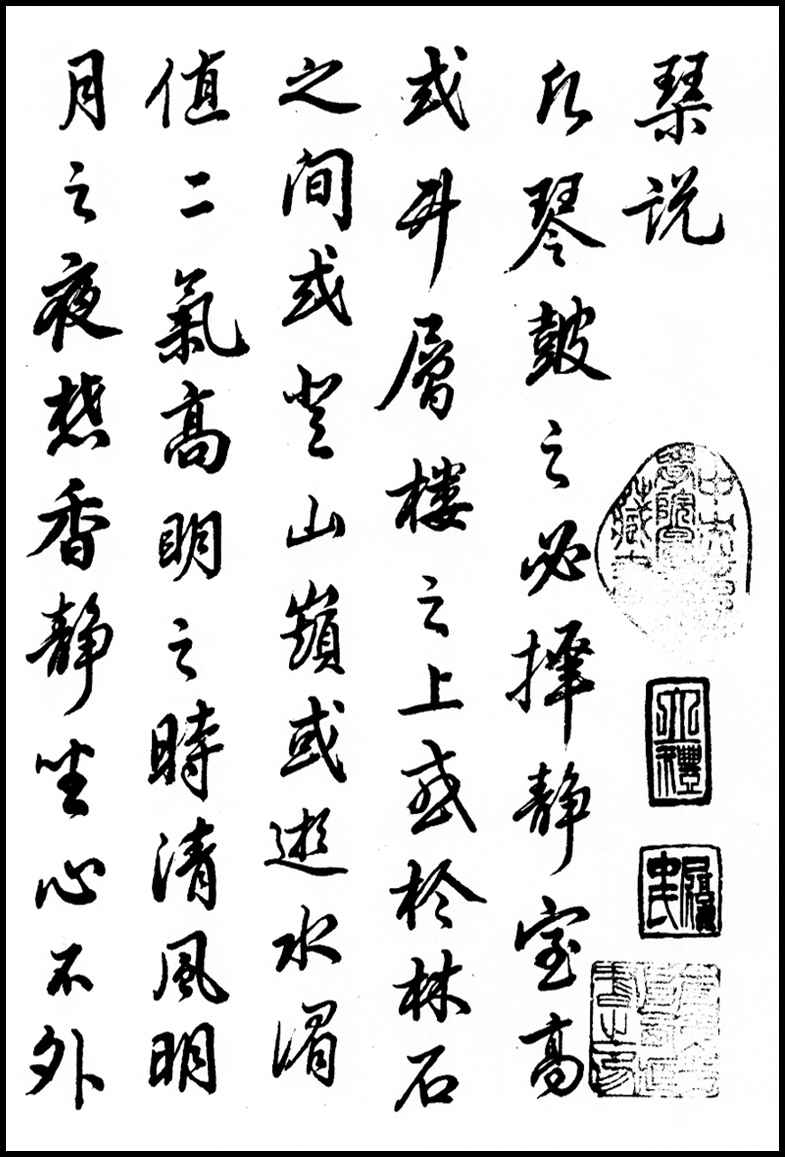 琴说
凡琴鼓之必择静室高
或升層楼之上或於林石
之间或登山巔或遊水湄
值二氣高明之時清風明
月之夜焚香静坐心不外